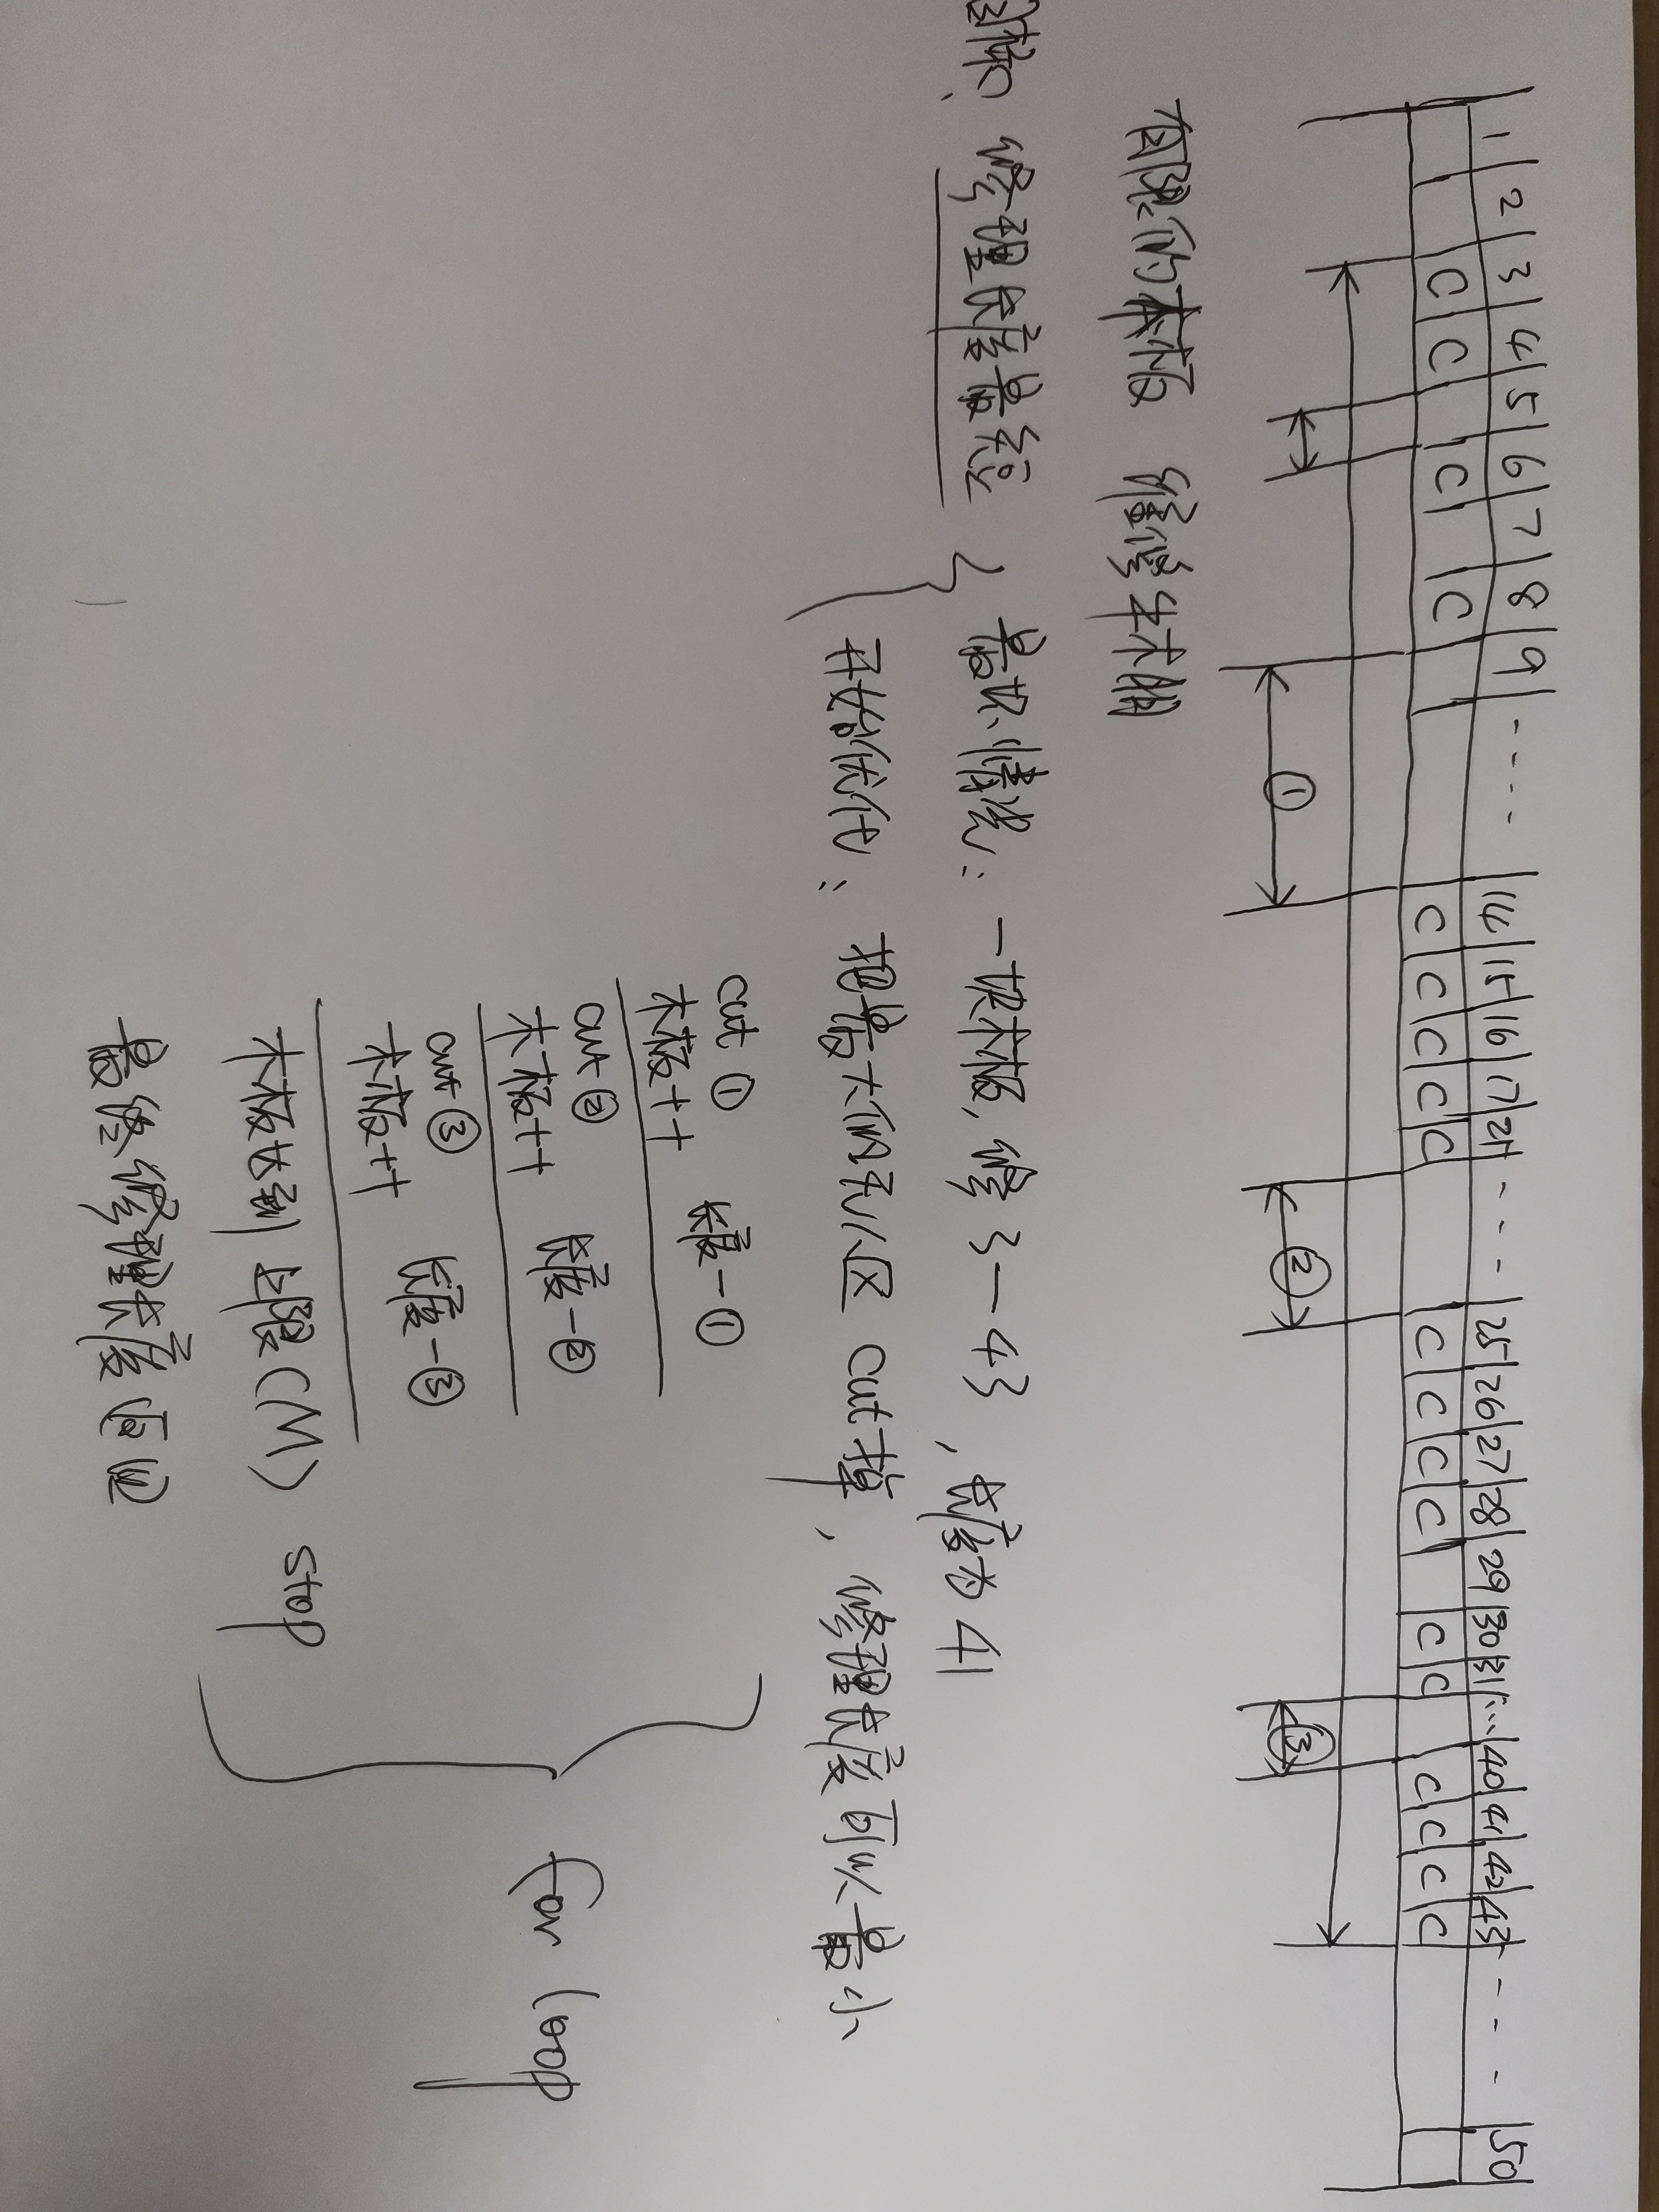 1 2 3 4 5 6 7 8 9 ---- 14 15 16 17 21 ---- 25 26 27 28 29 30 31 ... 40 41 42 43 ---- 50
C C C C C C C C C C C C C C C C C C C
① ② ③
有限的木板 维修牛木朋
目标: 修理长度最短
最坏情况: 一块木板, 修 3—43, 长度为 41
开始优化: 把最大的无人区 cut掉, 修理长度可以最小
cut ① 长度-①
木板++
cut ② 长度-②
木板++
cut ③ 长度-③
木板++
for loop
木板达到 上限(M) stop
最终修理长度返回